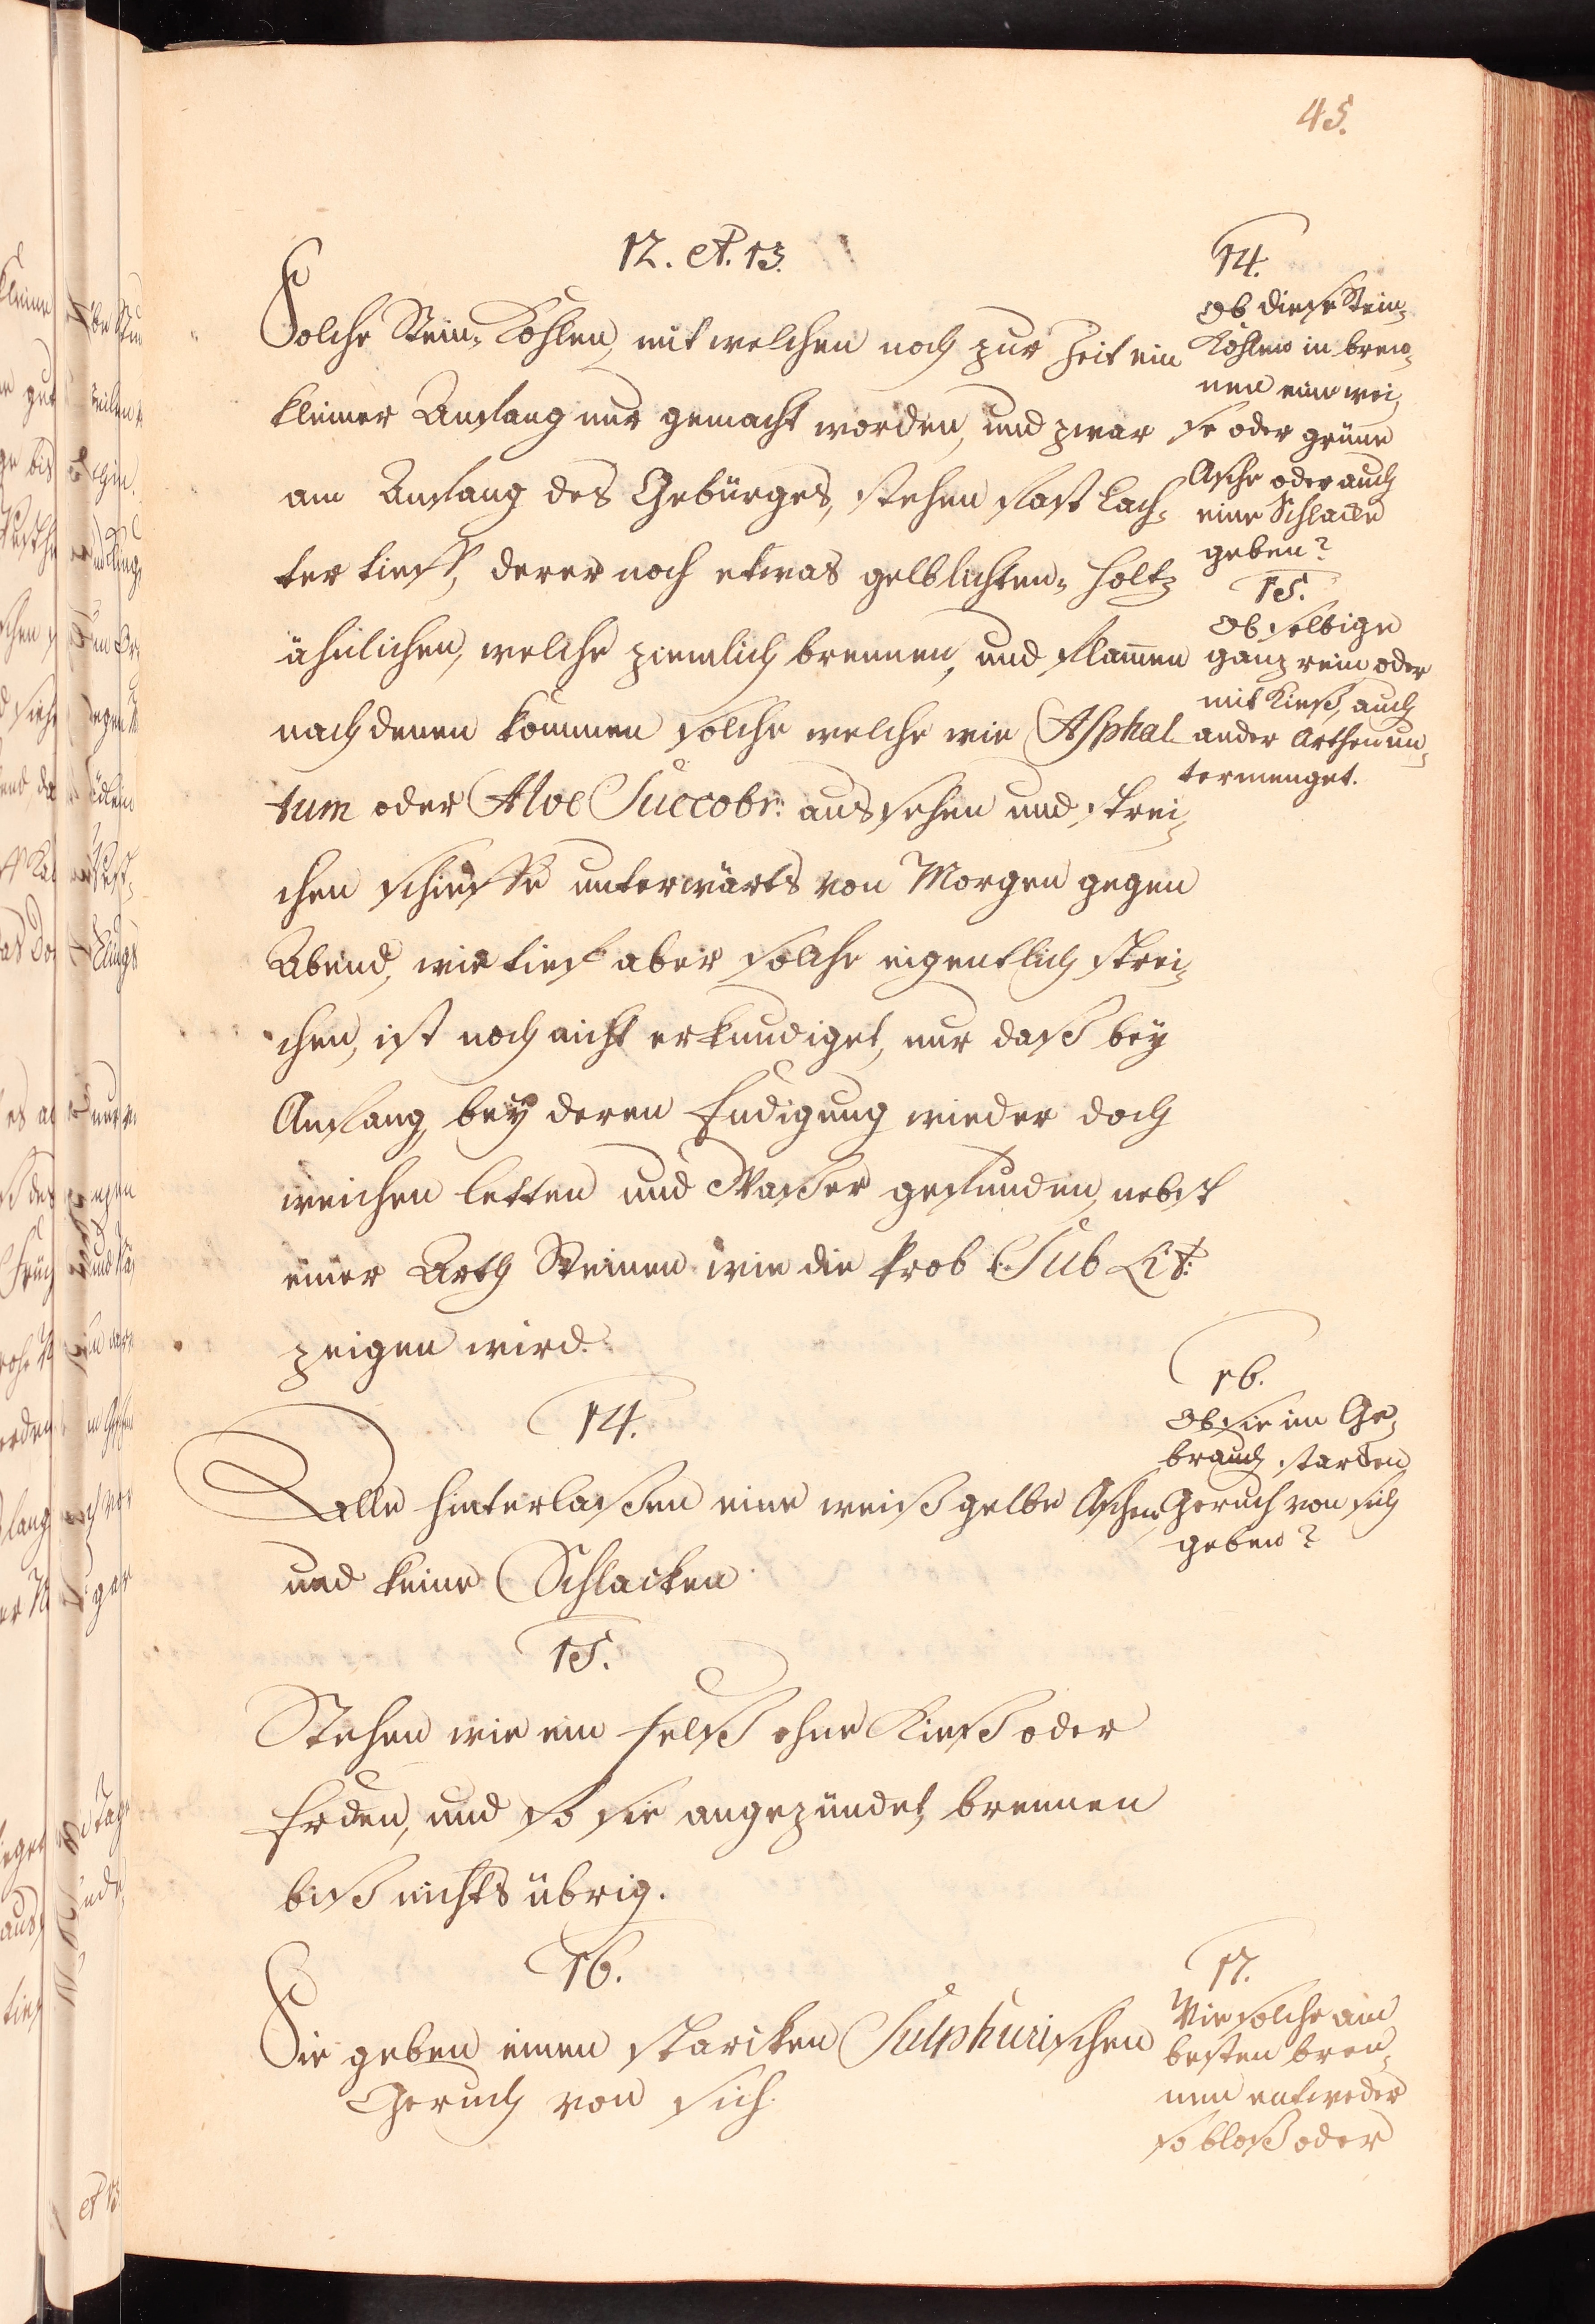 45.
12. et. 13.
Solche Stein-Kohlen, mit welchen noch zur Zeit ein
kleiner Anfang nur gemacht worden, und zwar
am Anfang des Gebürges, stehen fast Lach-
ter tieff, derer noch etwas gelblichten- Holtz
ähnlichen, welche ziemlich brennen, und flam̄en
nach denen kommen solche welche wie Asphal-
tum oder Aloe Succotr: aussehen und strei-
chen schieffe unterwärts von Morgen gegen
Abend, wie tieff aber solche eigentlich strei-
chen, ist noch nicht erkundiget, nur daß bey
Anfang, bey deren Endigung wieder doch
weichen letten und Waßer gefunden, nebst
einer Arth Steinen wie die Prob Sub Lit:
zeigen wird.
14.
Alle hinterlaßen eine weiß gelbe Aschen
und keine Schlacken
15.
Stehen wie ein Felß ohne Kieß oder
Erden, und so sie angezündet, brennen
biß nichts übrig.
16.
Sie geben einen starcken Sulphurischen
Geruch von sich.
14.
Ob diese Stein-
Kohlen in bren-
nen eine wei-
se oder grüne
Asche oder auch
eine Schlacke
geben?
15.
Ob selbige
ganz rein oder
mit Kieß, auch
ander Arthen un-
termenget.
16.
Ob sie im Ge-
brauch starcken
Geruch von sich
geben?
17.
Wie solche am
besten bren-
nen entweder
so bloß oder